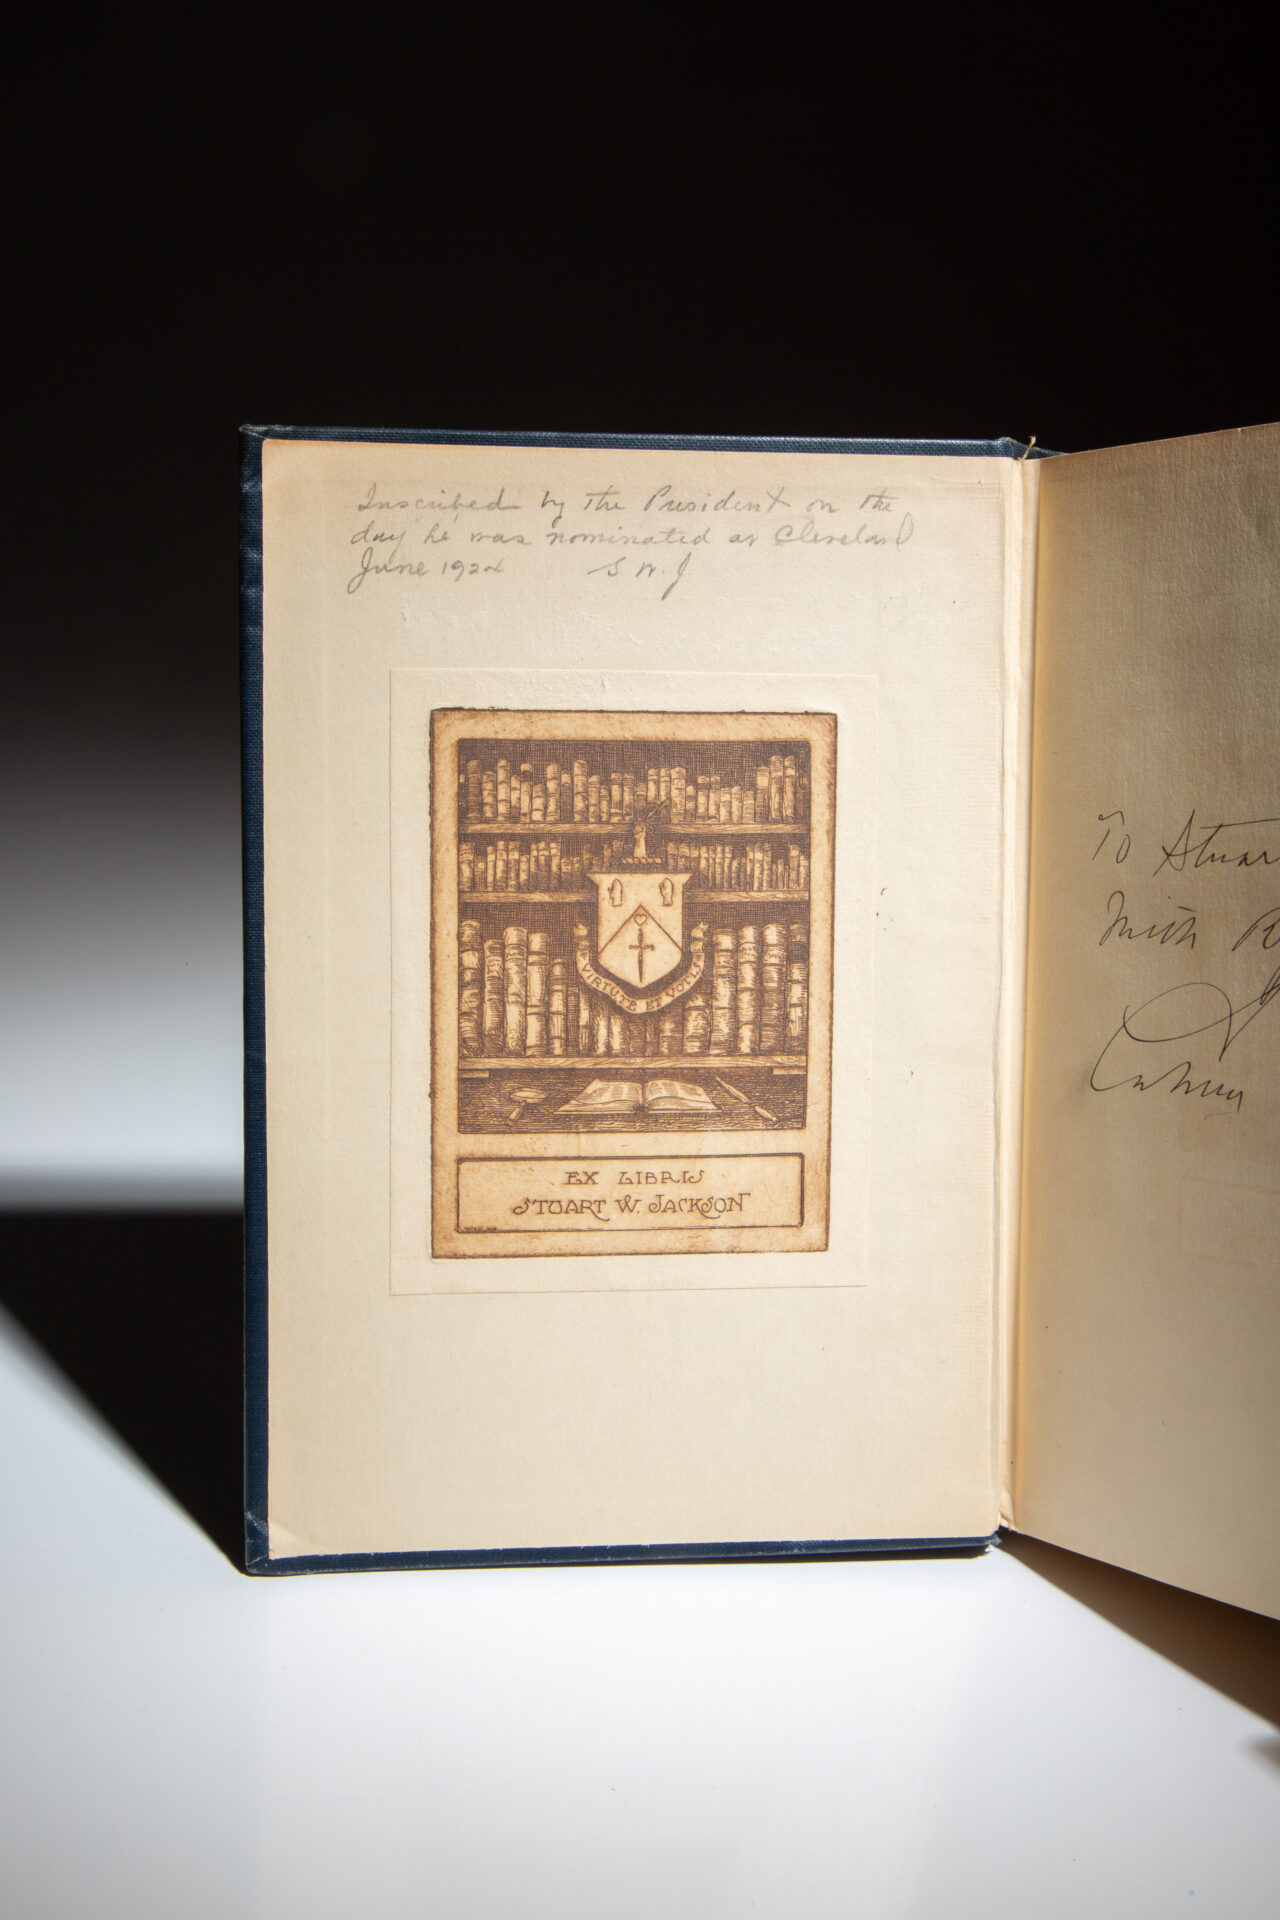 Inscribed by the President on the
day he was nominated at Cleveland
June 1924 S. W. J
VIRTUTE ET VOTIS
EX LIBRIS
STUART W. JACKSON
To Stuar
With R
Calvin